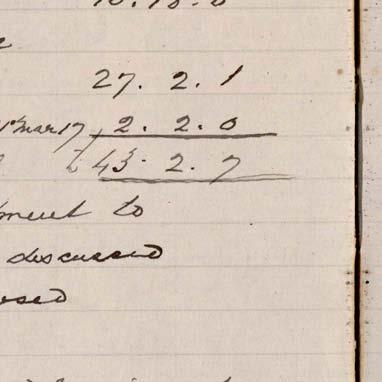 27. 2. 1
1st Mar 17, 2. 2. 0
£ 43. 2. 7
ment to
discussed
osed